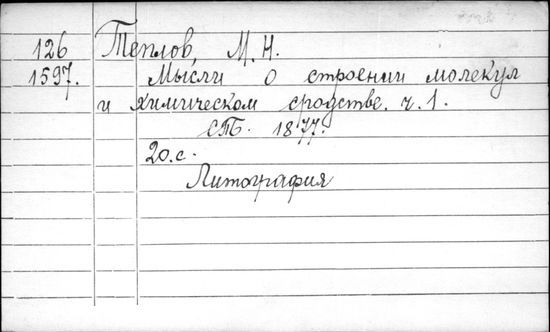 126 Теплов, М. Н.
1597. Мысли о строении молекул
и химическом сродстве. ч. 1.
СПб. 1877.
20.с.
Литография